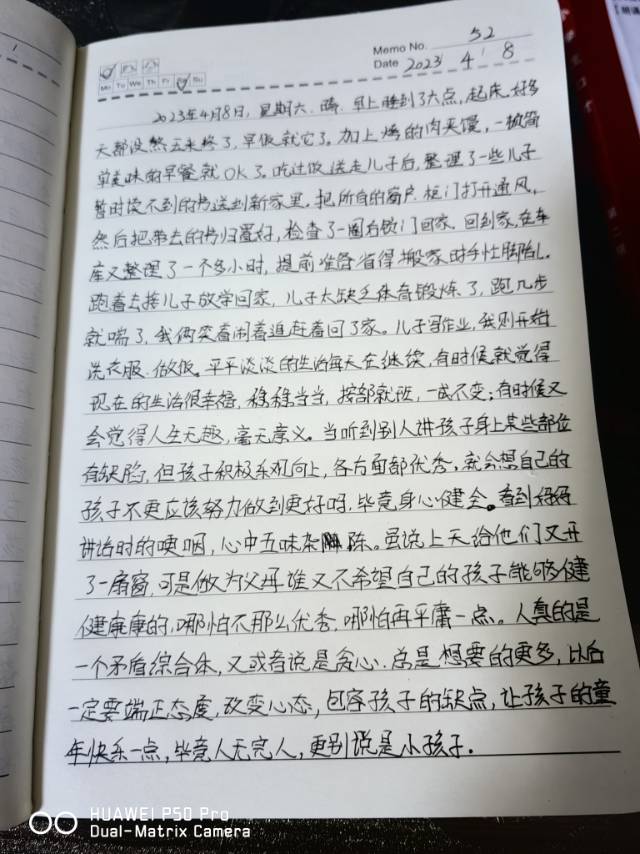 Memo No. 52
Mo Tu We Th Fr Su
Date 2023 4 8
2023年4月8日，星期六，晴，早上睡到了六点，起床，好多
天都没熬玉米糁了，早饭就它了。加上烤的肉夹馍，一顿简
单美味的早餐就OK了。吃过饭送走儿子后，整理了一些儿子
暂时读不到的书送到新家里。把所有的窗户、柜门打开通风，
然后把带去的书归置好，检查了一圈后锁门回家。回到家，在车
库又整理了一个多小时，提前准备省得搬家时手忙脚乱。
跑着去接儿子放学回家，儿子太缺乏体育锻炼了，跑几步
就喘了，我俩笑着闹着追赶着回了家。儿子写作业，我则开始
洗衣服、做饭。平平淡淡的生活每天在继续，有时候就觉得
现在的生活很幸福，稳稳当当，按部就班，一成不变；有时候又
会觉得人生无趣，毫无意义。当听到别人讲孩子身上某些部位
有缺陷，但孩子积极乐观向上，各方面都优秀，就会想自己的
孩子不更应该努力做到更好吗，毕竟身心健全。看到妈妈
讲话时的哽咽，心中五味杂陈。虽说上天给他们又开
了一扇窗，可是做为父母谁又不希望自己的孩子能够健
健康康的，哪怕不那么优秀，哪怕再平庸一点。人真的是
一个矛盾综合体，又或者说是贪心，总是想要的更多，以后
一定要端正态度，改变心态，包容孩子的缺点，让孩子的童
年快乐一点，毕竟人无完人，更别说是小孩子。
HUAWEI P50 Pro
Dual-Matrix Camera